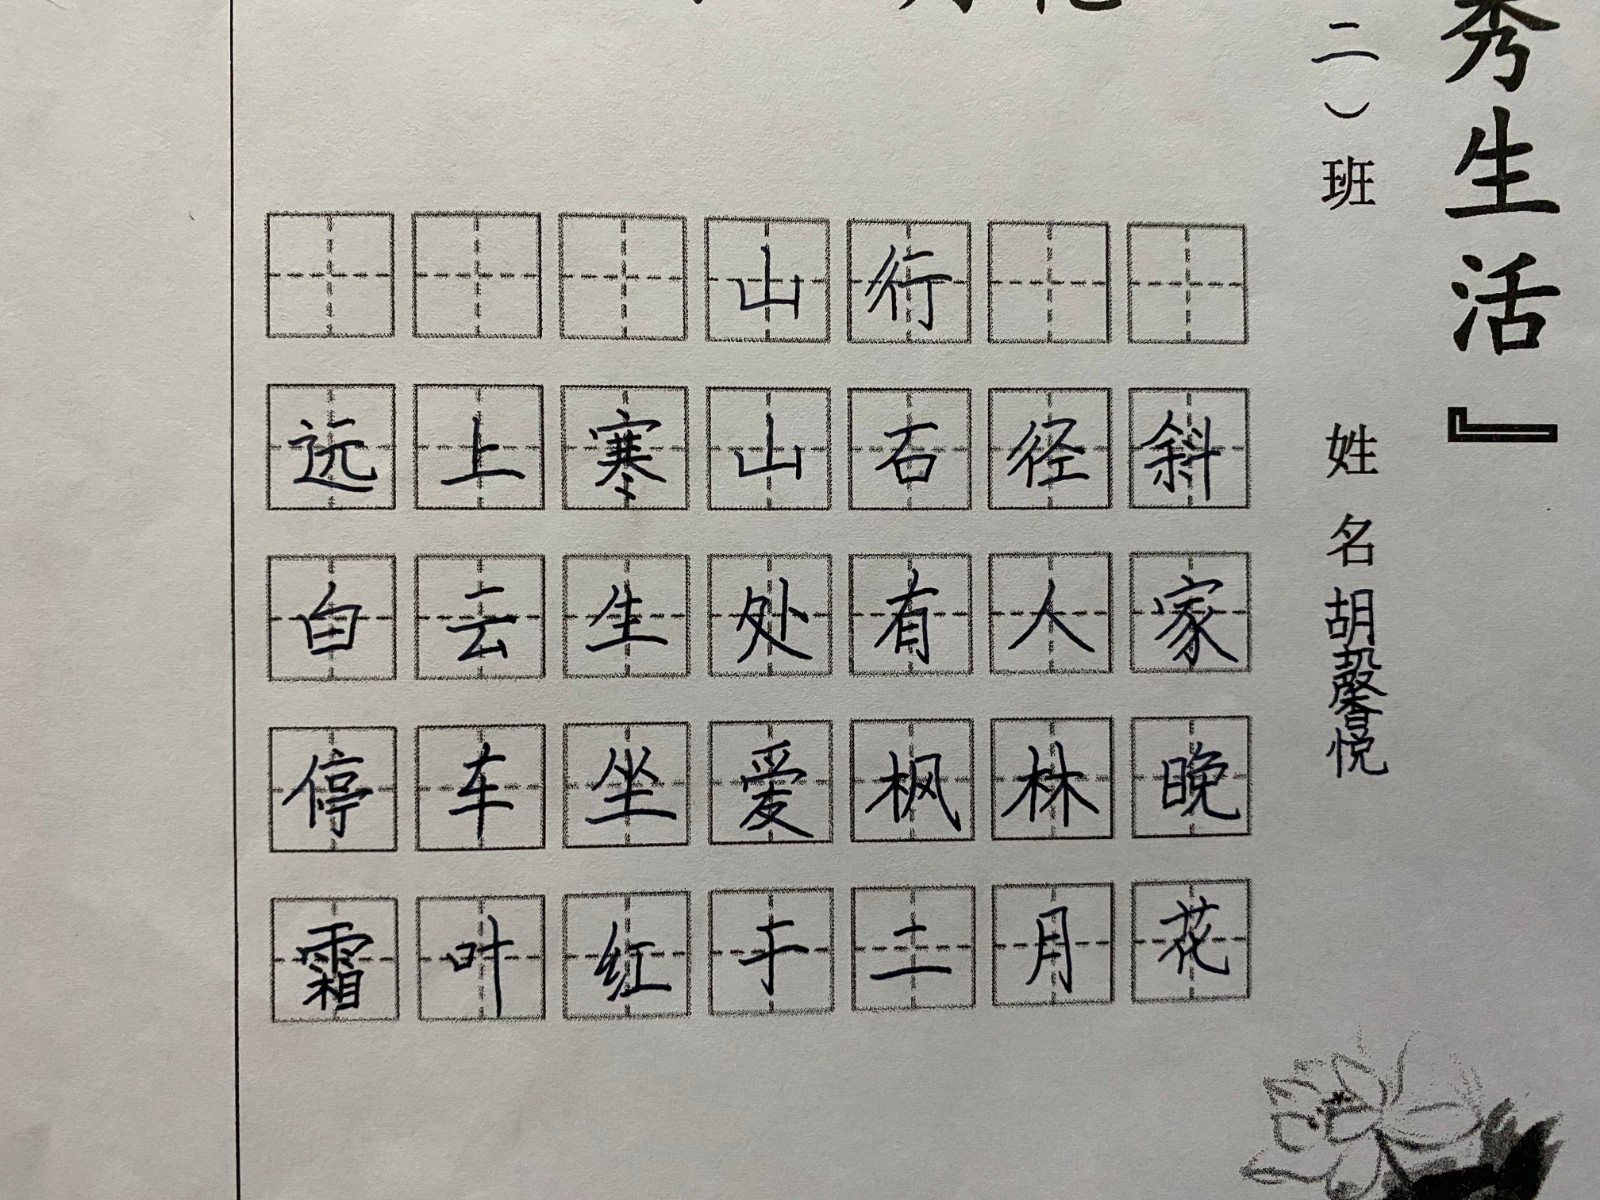 山行
远上寒山石径斜
白云生处有人家
停车坐爱枫林晚
霜叶红于二月花
二）班 姓名胡馨悦
秀生活』